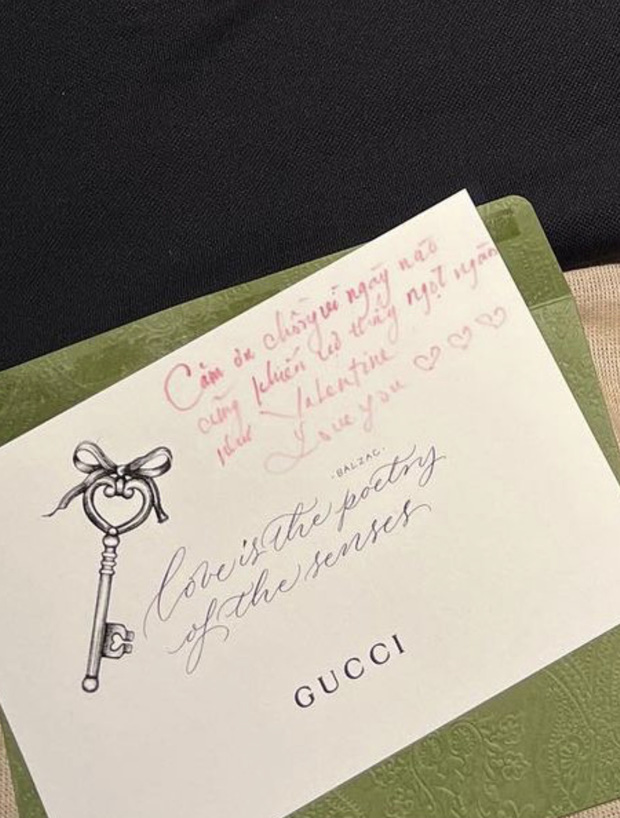 Cảm ơn chồng vì ngày nào
cũng khiến vợ thấy ngọt ngào
như Valentine
Love you ♡♡♡
·BALZAC·
love is the poetry
of the senses
GUCCI